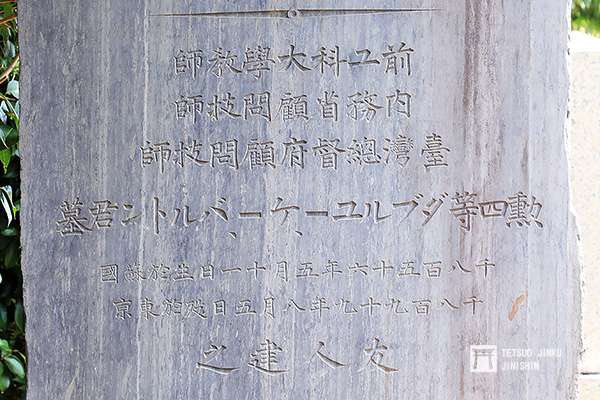 前工科大學教師
内務省顧問技師
臺灣總督府顧問技師
勳四等ダブルユー、ケー、バルトン君墓
千八百五十六年五月十一日生於蘇國
千八百九十九年八月五日歿於東京
友人建之
TETSUO JINKU
JINISHIN